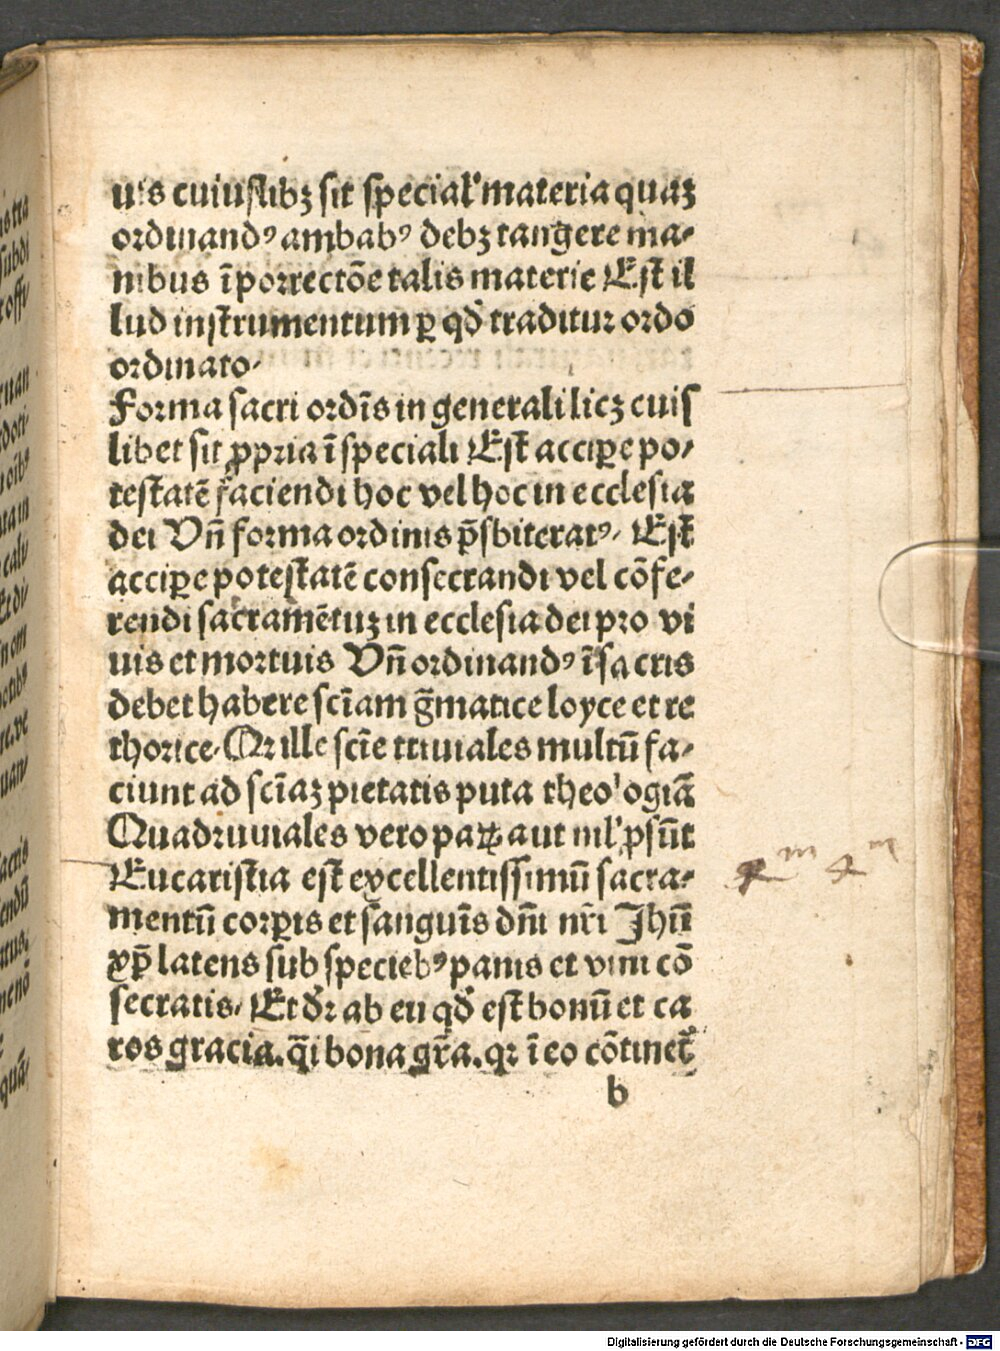 uis cuiuslibꝫ sit special' materia quaꝫ
ordinandꝰ ambabꝰ debꝫ tangere ma-
nibus ī porrectōe talis materie Est il
lud instrumentum ꝑ qd̄ traditur ordo
ordinato.
Forma sacri ordīs in generali licꝫ cuis
libet sit ꝓpria ī speciali Est accipe po-
testatē faciendi hoc vel hoc in ecclesia
dei Vn̄ forma ordinis p̄sbiteratꝰ. Est
accipe potestatē consecrandi vel cōfe-
rendi sacramētuꝫ in ecclesia dei pro vi
uis et mortuis Vn̄ ordinandꝰ ī sacris
debet habere scīam g̅matice loyce et re
thorice. Qꝛ ille scīe triuiales multū fa-
ciunt ad scīaꝫ pietatis puta theologiā
Quadruuiales vero paꝝ aut nil' ꝓsūt
Eucaristia est excellentissimū sacra-
mentū corꝑis et sanguīs dn̄i nr̄i Jhū
xp̄ latens sub speciebꝰ panis et vini cō
secratis. Et dr̄ ab eu qd̄ est bonū et ca
ros gracia. q̄i bona gr̄a. qꝛ ī eo cōtinet̄
b
4m 4m
Digitalisierung gefördert durch die Deutsche Forschungsgemeinschaft - DFG